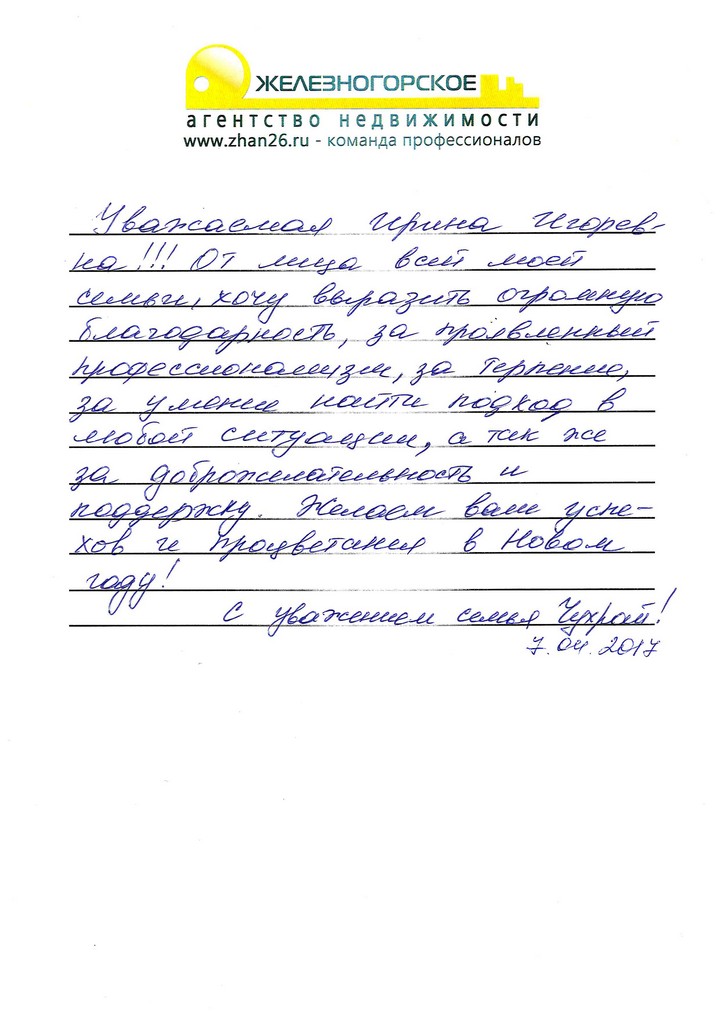 ЖЕЛЕЗНОГОРСКОЕ
агентство недвижимости
www.zhan26.ru - команда профессионалов
Уважаемая Ирина Игорев-
на!!! От лица всей моей
семьи, хочу выразить огромную
благодарность, за проявленный
профессионализм, за терпение,
за умение найти подход в
любой ситуации, а так же
за доброжелательность и
поддержку. Желаем вам успе-
хов и процветания в Новом
году!
С уважением семья Чухрай!
7.04.2017